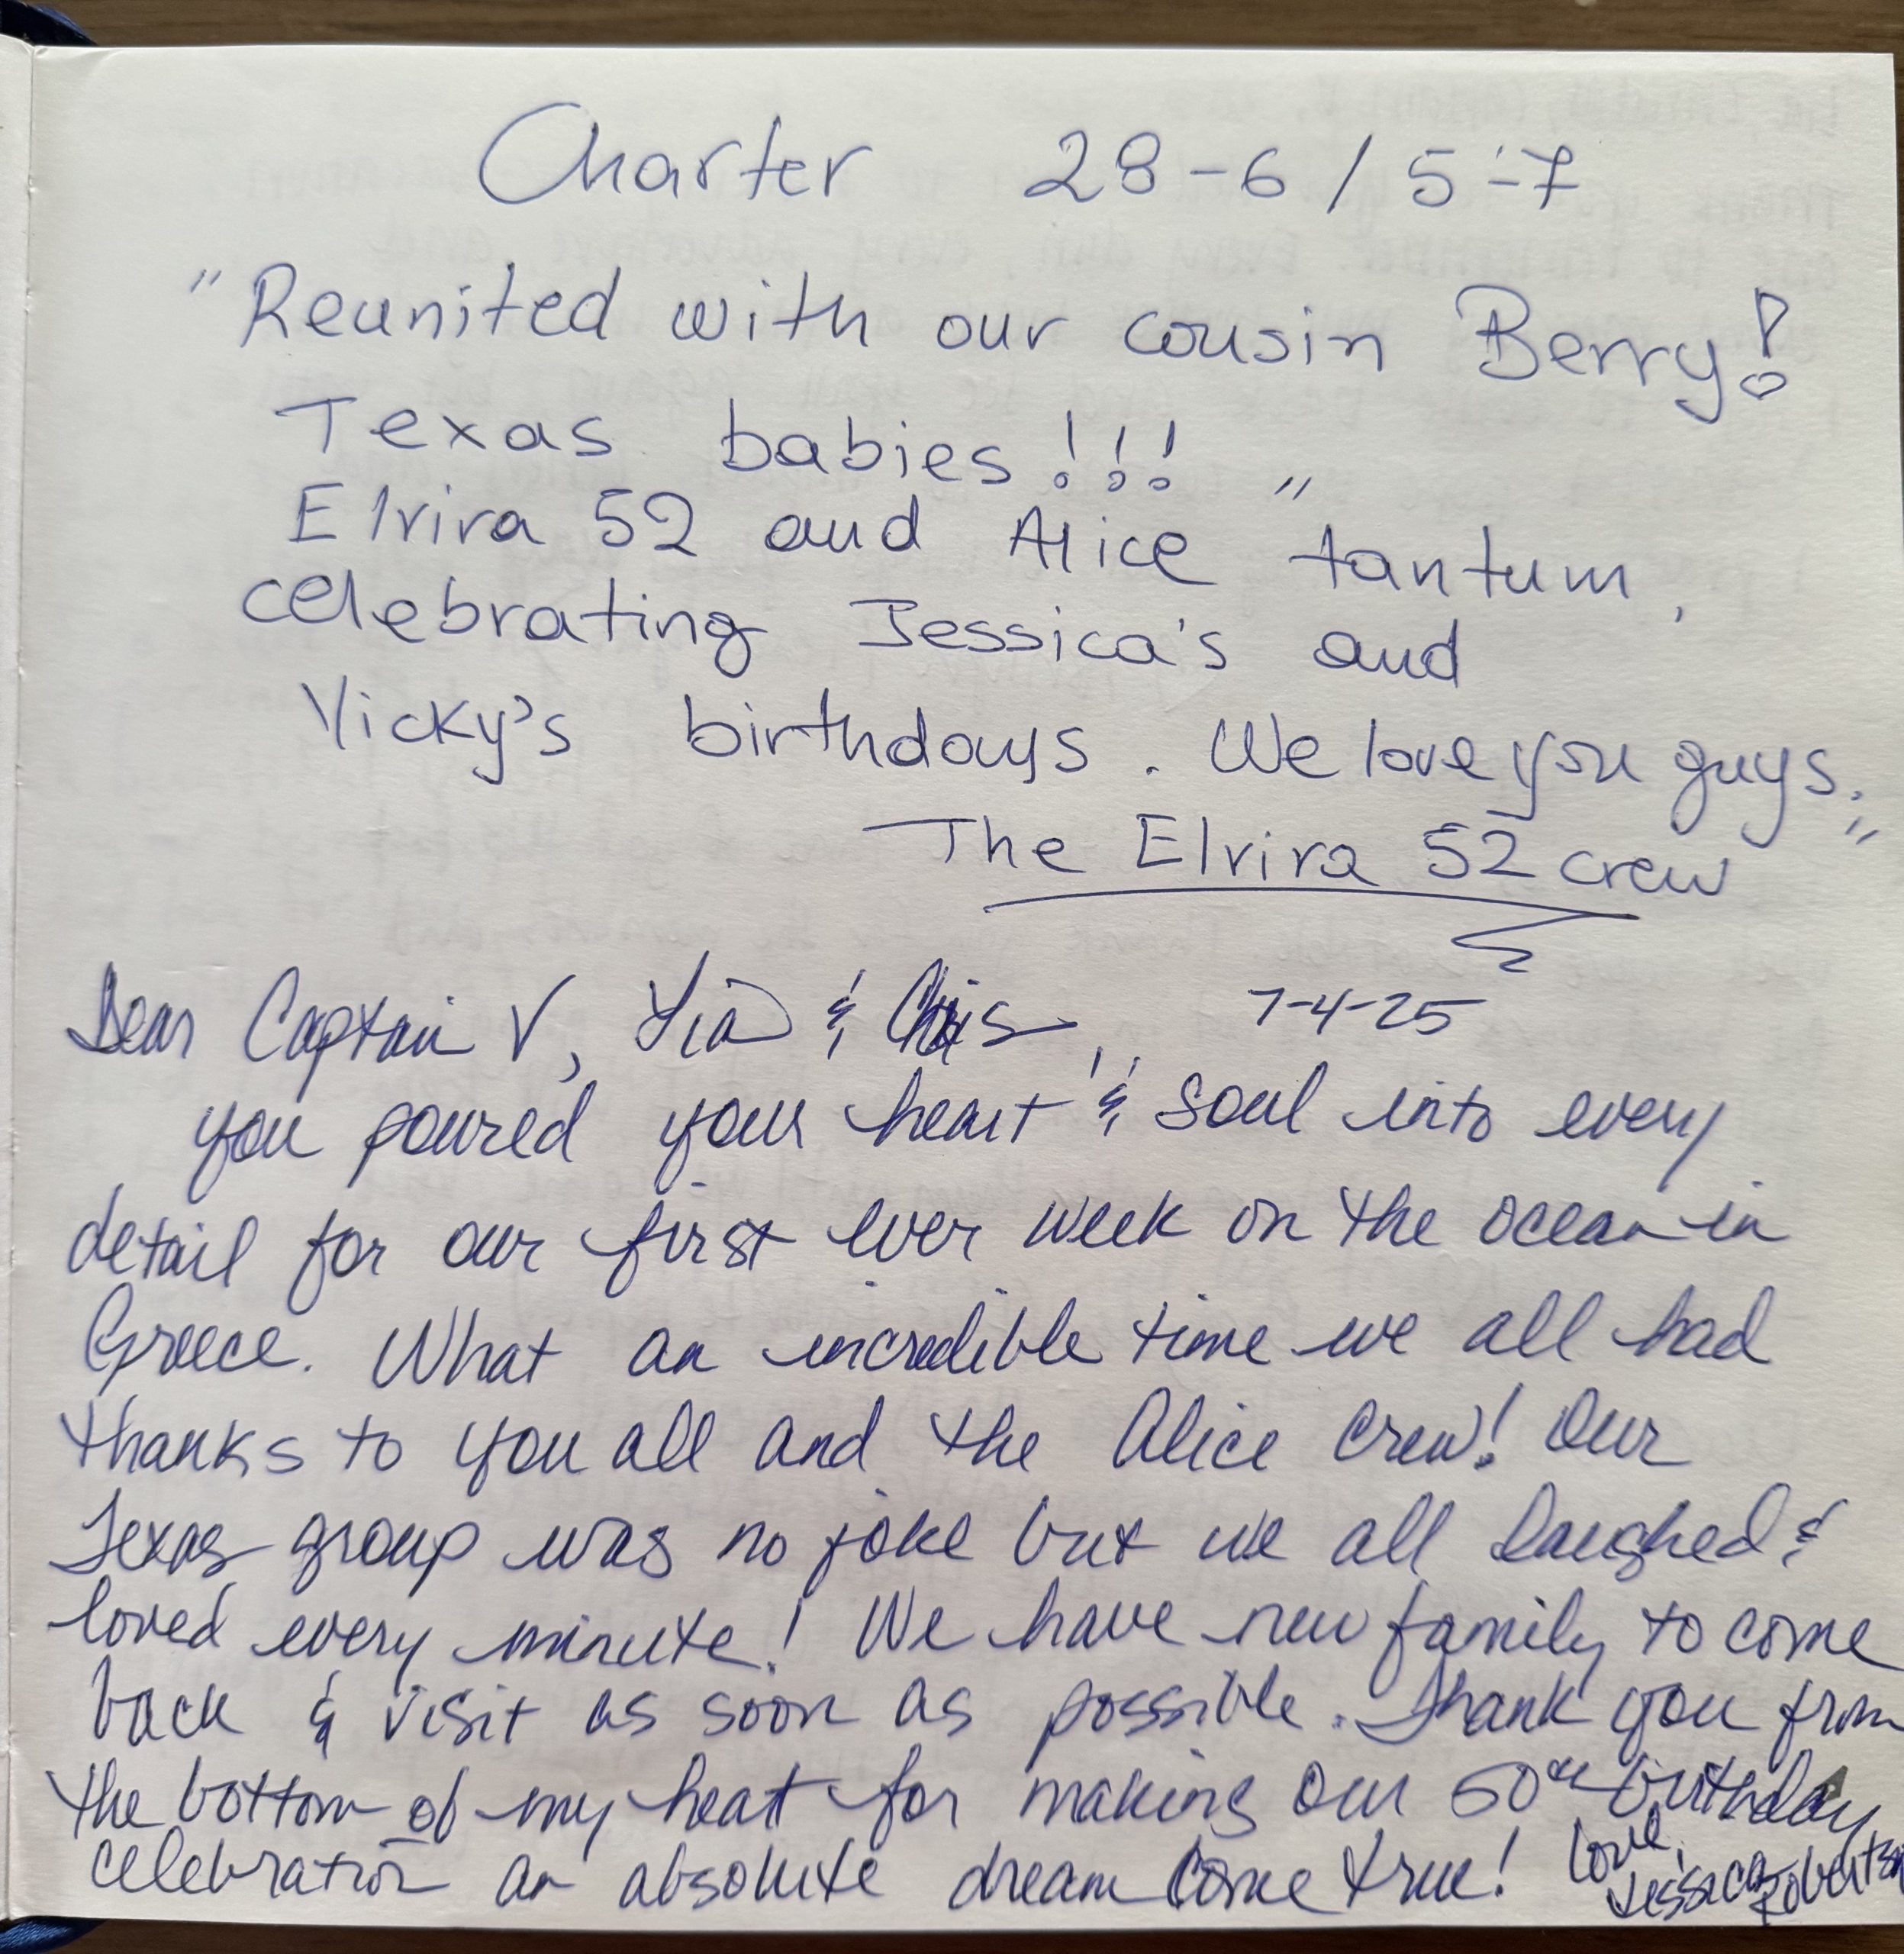 Charter 28-6 / 5-7
"Reunited with our cousin Berry!
Texas babies!!! "
Elvira 52 and Alice tantum,
celebrating Jessica's and
Vicky's birthdays. We love you guys."
The Elvira 52 crew
Dear Captain V, Lia & Chris, 7-4-25
you poured your heart & soul into every
detail for our first ever week on the ocean in
Greece. What an incredible time we all had
thanks to you all and the Alice crew! Our
Texas group was no joke but we all laughed &
loved every minute! We have new family to come
back & visit as soon as possible. Thank you from
the bottom of my heat for making our 50th birthday
celebration an absolute dream come true! Love,
Jessica Robertson